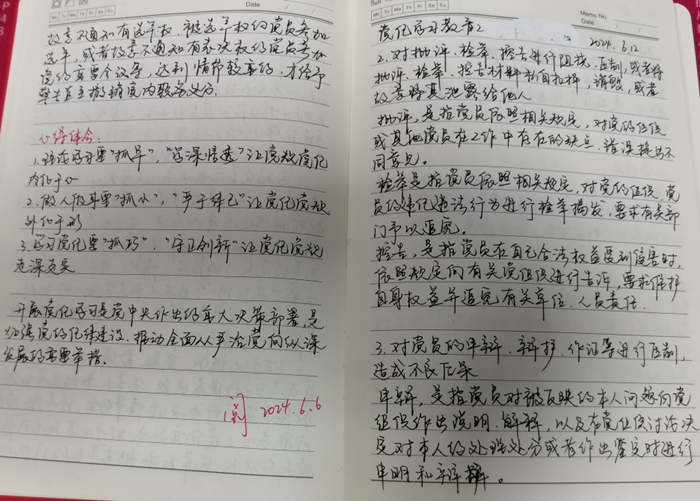 故意不通知有选举权、被选举权的党员参加
选举，或者故意不通知有表决权的党员参加
党的重要会议等，达到情节较重的，才给予
警告直至撤销党内职务处分.
心得体会:
1. 谈论学习要"抓早"，"学深悟透"让党规党纪
内化于心
2. 做人做事要"抓小"，"严于律己"让党纪党规
外化于形
3. 学习党纪要"抓巧"，"守正创新"让党纪党规
走深走实
开展党纪学习是党中央作出的重大决策部署，是
加强党的纪律建设、推动全面从严治党向纵深
发展的重要举措.
阅 2024.6.6
Mo Tu We Th Fr Sa Su
Memo No.
Date
党纪学习教育2
2024. 6.12
2. 对批评、检举、控告进行阻挠、压制，或者将
批评、检举、控告材料私自扣押、销毁，或者
故意将其泄露给他人
批评，是指党员依照相关规定，对党的组织
或其他党员在工作中存在的缺点、错误提出不
同意见。
检举是指党员依照相关规定，对党的组织、党
员的违纪违法行为进行检举揭发，要求有关部
门予以追究。
控告，是指党员在自己合法权益受到侵害时，
依照规定向有关党组织进行告诉，要求保护
自身权益并追究有关单位、人员责任.
3. 对党员的申辩、辩护、作证等进行压制，
造成不良后果
申辩，是指党员对被反映的本人问题向党
组织作出说明、解释，以及在党组织讨论决
定对本人的处理处分或者作出鉴定时进行
申明和辩解。